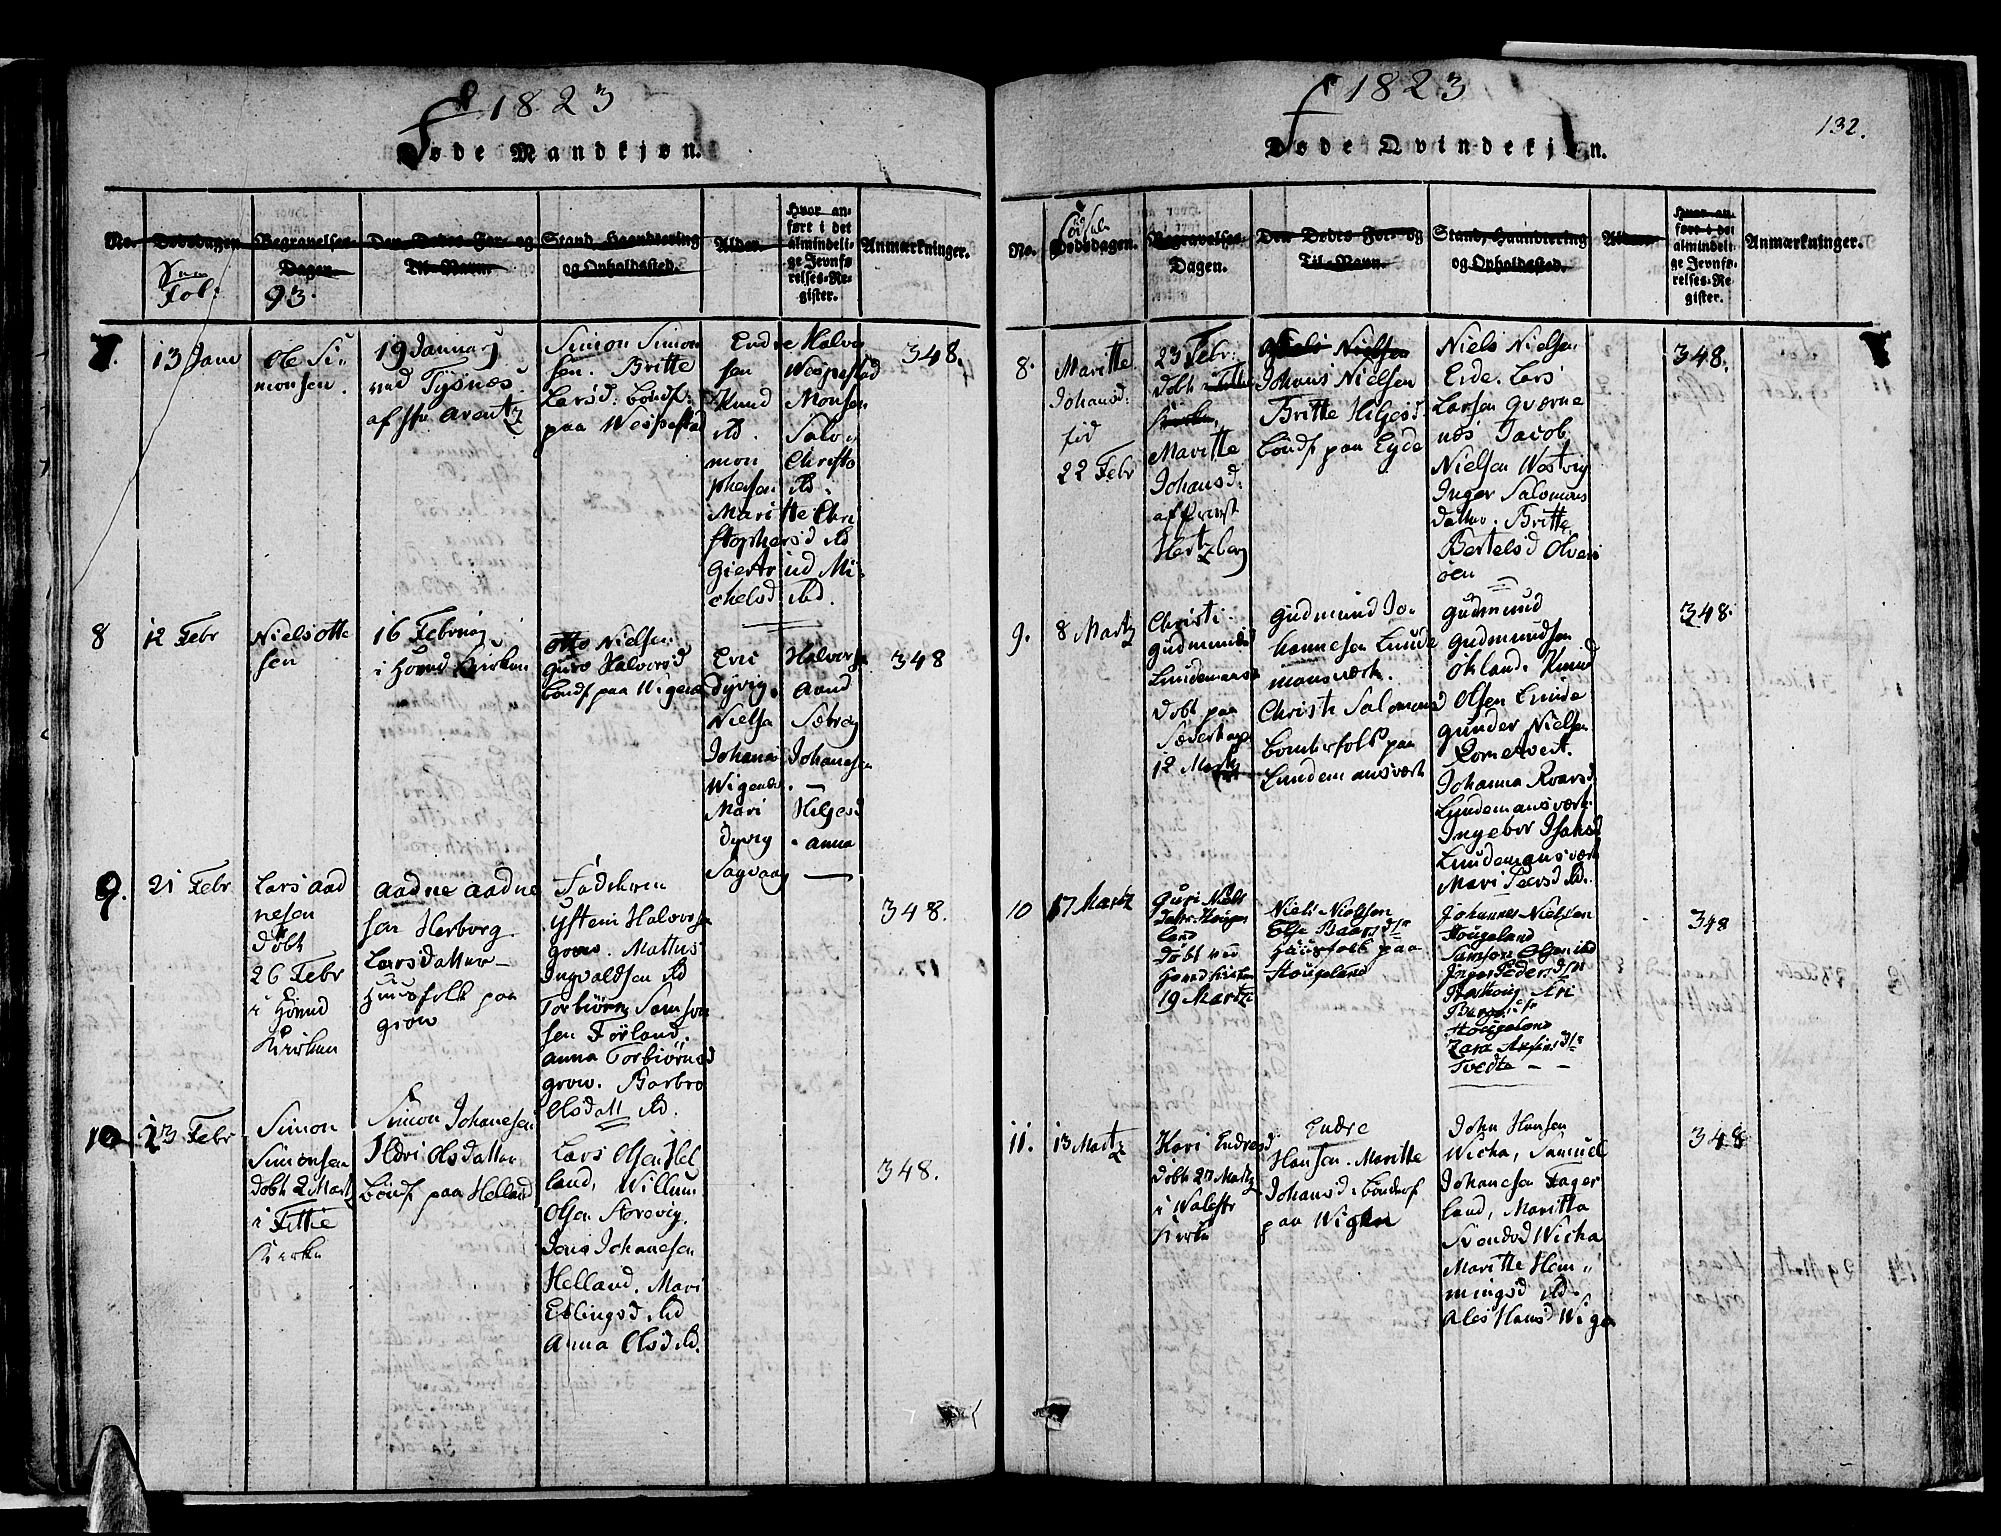 1823
Føde Mandkjøn.
No.
Dødsdagen
Begravelses-
Dagen.
Den Dødes For- og
Til-Navn.
Stand, Haandtering
og Opholdssted.
Alder.
Hvor an-
ført i det
almindeli-
ge Jevnfø-
relses-Re-
gister.
Anmærkninger.
Fol:
93.
7.
13 Janu
Ole Si-
monsen.
19 Januarj
ved Tysnæs.
af Hr Arentz
Simon Simon
sen. Britte
Larsd. bondf:
paa Wespestad
Endre Halvor
sen Wespestad
Knud Monsen
ibd. Salo-
mon Christo
phersen ibd.
Maritte Chri
stophersd ibd
Giertrud Mi-
chelsd ibd.
348.
8
12 Febr
Niels Otte
sen
16 Februarj
i Hovud Kirken
Otto Nielsen
Guro Halvorsd
bondf paa Wigen
Eric Halvorse
Dyvig. Aand
Nielsa Sæbrey
Johana Johanesen
Wigenes.
Mari Helgesd
Dyvig. Anna
Sagvaag
348
9.
21 Febr
Lars Aad
nesen
døbt
26 Febr
i Hovud
Kirken
Aadne Aadne
sen Herborg
Larsdatter
Huusfolk paa
Grow
Fadderne
Ystein Halvorsen
Grow. Mattus
Ingvaldsen ibd
Torbiørn Samson
sen Førland.
Anna Torbiørnsd
Grow. Barbro
Olsdatt ibd.
348.
10
23 Febr
Simon
Simonsen
døbt 2 Martz
i Fittie
Kirke
Simon Johanesen
Ildri Olsdatter
böndf paa Helland
Lars Olsen Hel
land, Willum
Olsen Storevig.
Jens Johanesen
Helland. Mari
Ellingsd ibd
Anna Olsd ibd.
348.
1823
132.
Døde Qvindekjøn.
No.
Fødsels
Dødsdagen.
Begravelses-
Dagen.
Den Dødes For- og
Til-Navn.
Stand, Haandtering
og Opholdssted.
Alder.
Hvor an-
ført i det
almindeli-
ge Jevnfø-
relses-Re-
gister.
Anmærkninger.
8.
Maritte
Johansd:
fød
22 Febr
23 Febr:
døbt
Kirke.
Maritte
Johansd:
af Provst
Hertzberg
Niels Nielsen
Johans Nielsen
Britte Helgesd
böndf paa Eyde
Niels Nielsen
Eide. Lars
Larsen Qværne
næs Jacob
Nielsen Westvig
Inger Salomons
datter. Britte
Bertelsd Olvers
öen
348.
9.
8 Martz
Christi
Gudmundsd
Lundemansv
døbt paa
12 Martz
Gudmund Jo-
hannesen Lunde
mansværk.
Christi Salomonsd
bomberfolk paa
Lundemansværk
Gudmund
Gudmundsen
Økland. Knud
Olsen Lunde
Gunder Nielsen
Johanna Roarsd
Lundemansværk
Ingebor Isaksd
Lundemansværk
Mari Peersd ibd.
348.
10
17 Martz
Guri Niels
datter Houge
land
døbt ved
Hovud kirken
19 Martz
Niels Nielssen
Else Baarsdtr
Huusfolk paa
Hougeland
Johannes Nielsen
Hougeland
Samson Olsen ibd
Inger Pedersdtr
Hougeland
Zara
Tvedte - -
348
11.
13 Martz
Kari Endresd
døbt 27 Martz
i Walestr
Kirke
Endre
Hansen. Maritte
Johansd. böndf
paa Wigen
John Hansen
Wicha, Samuel
Johanesen Fager
land, Maritta
Svendsd Wicha
Maritte Hem-
mingsd ibd.
Ales Hansd Wigen
348